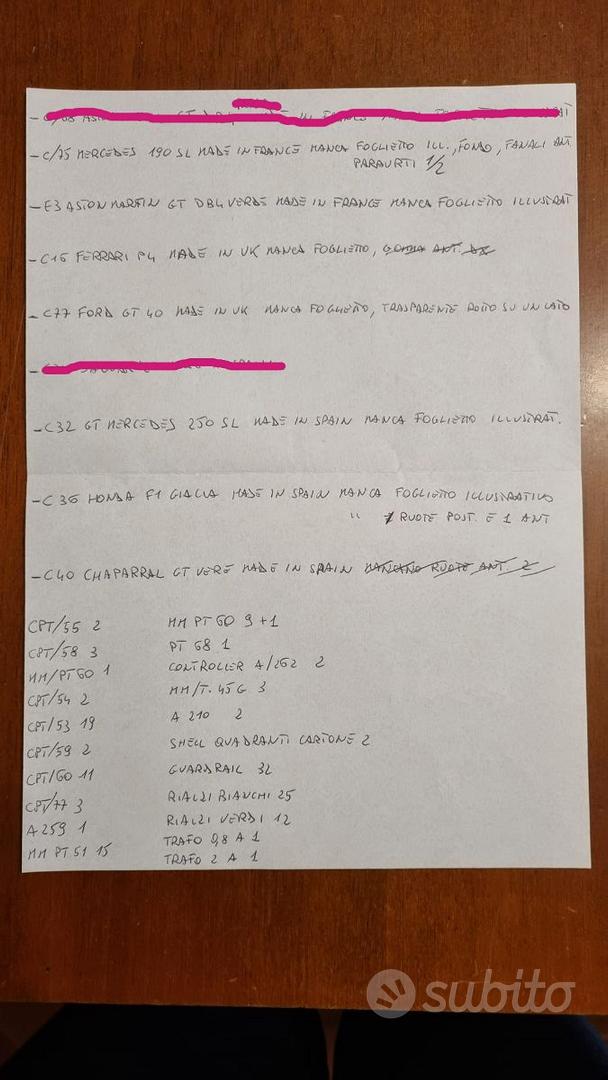 - C/75 MERCEDES 190 SL MADE IN FRANCE MANCA FOGLIETTO ILL., FONDO, FANALI ANT.
PARAURTI 1/2
- E3 ASTON MARTIN GT DB4 VERDE MADE IN FRANCE MANCA FOGLIETTO ILLUSTRAT
- C16 FERRARI P4 MADE IN UK MANCA FOGLIETTO, GOMMA ANT. DX
- C77 FORD GT 40 MADE IN UK MANCA FOGLIETTO, TRASPARENTE ROTTO SU UN LATO
- C32 GT MERCEDES 250 SL MADE IN SPAIN MANCA FOGLIETTO ILLUSTRAT.
- C36 HONDA F1 GIALLA MADE IN SPAIN MANCA FOGLIETTO ILLUSTRATIVO
" RUOTE POST. E 1 ANT
- C40 CHAPARRAL GT VERE MADE IN SPAIN MANCANO RUOTE ANT. 2
CPT/55 2
CPT/58 3
MM/PT60 1
CPT/54 2
CPT/53 19
CPT/59 2
CPT/60 11
CPT/77 3
A259 1
MM PT 51 15
MM PT 60 9+1
PT 68 1
CONTROLLER A/262 2
MM/T. 45G 3
A 210 2
SHELL QUADRANTI CARTONE 2
GUARDRAIL 32
RIALZI BIANCHI 25
RIALZI VERDI 12
TRAFO 0,8 A 1
TRAFO 2 A 1
subito